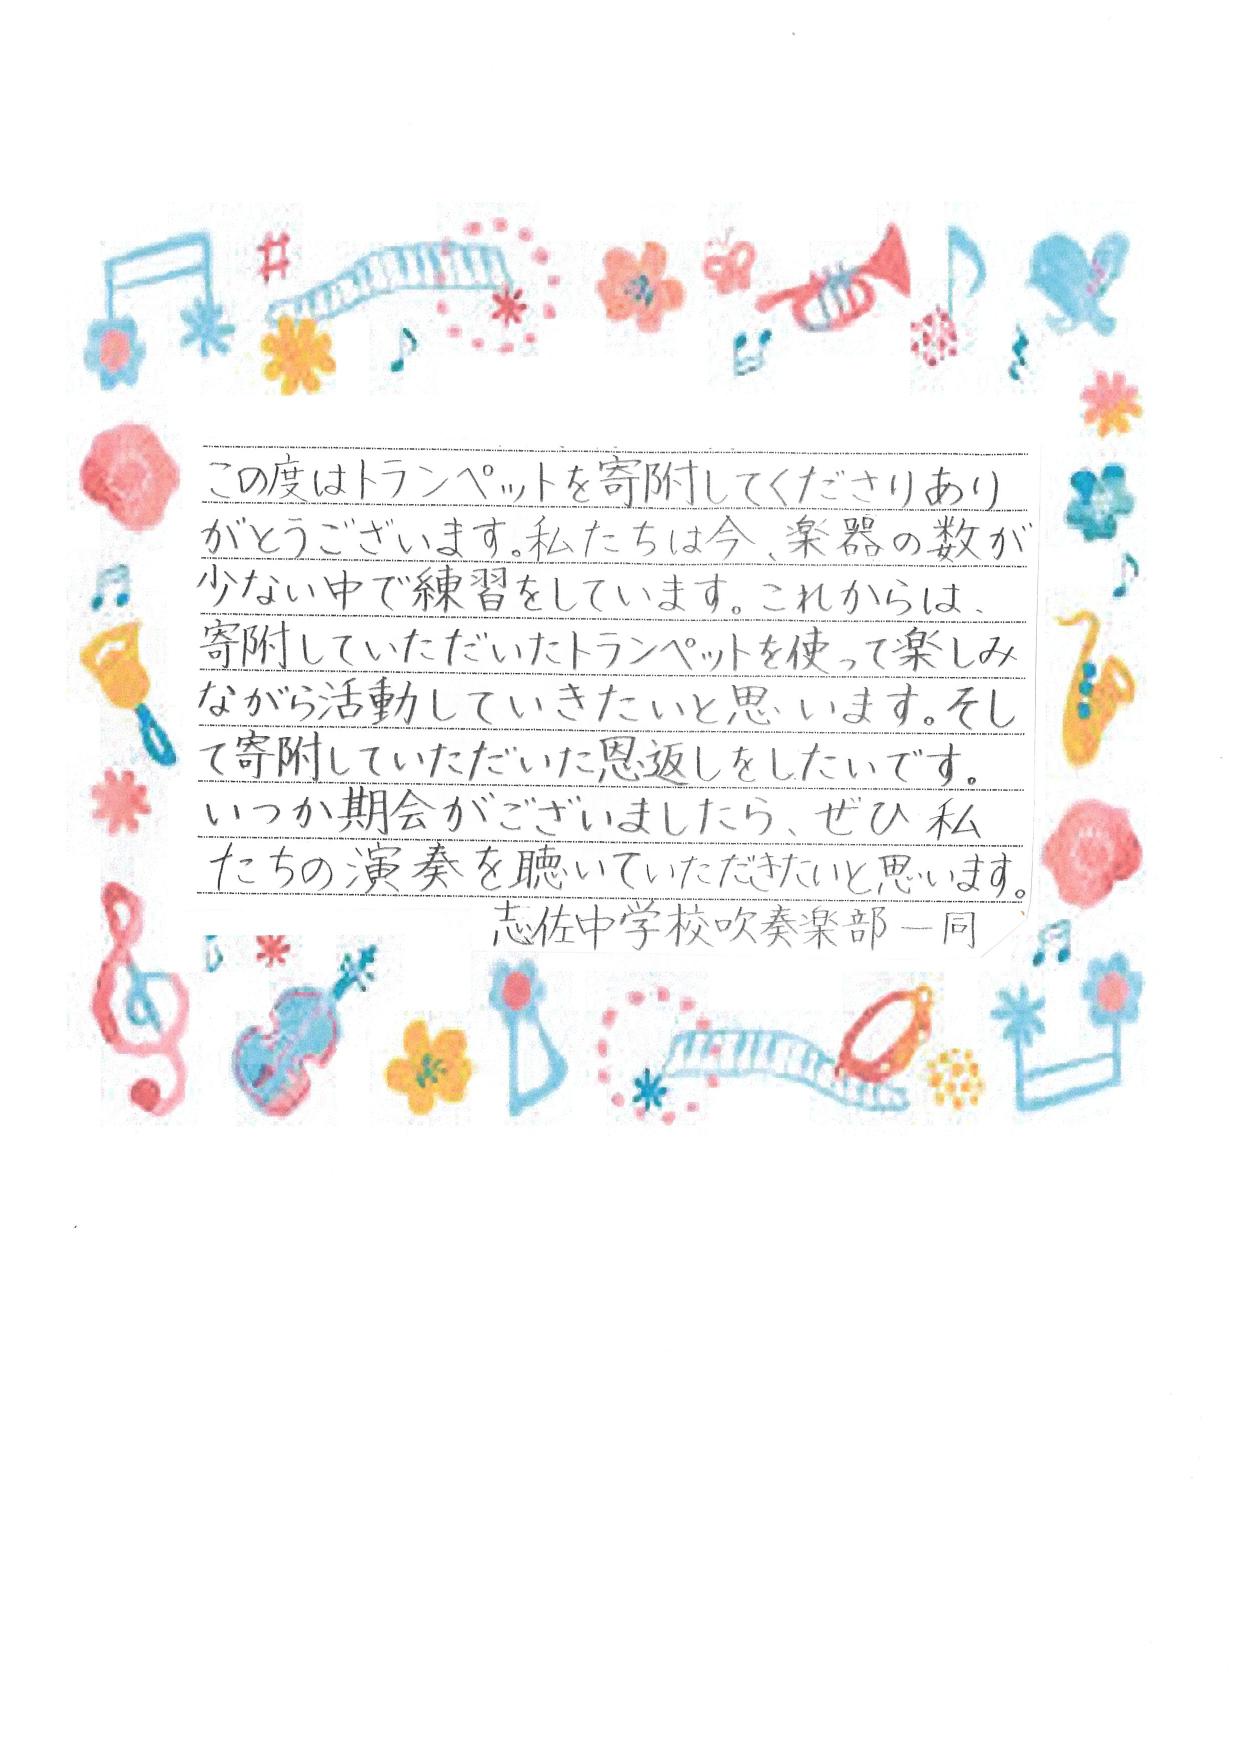 この度はトランペットを寄附してくださりあり
がとうございます。私たちは今、楽器の数が
少ない中で練習をしています。これからは、
寄附していただいたトランペットを使って楽しみ
ながら活動していきたいと思います。そし
て寄附していただいた恩返しをしたいです。
いつか期会がございましたら、ぜひ私
たちの演奏を聴いていただきたいと思います。
志佐中学校吹奏楽部一同